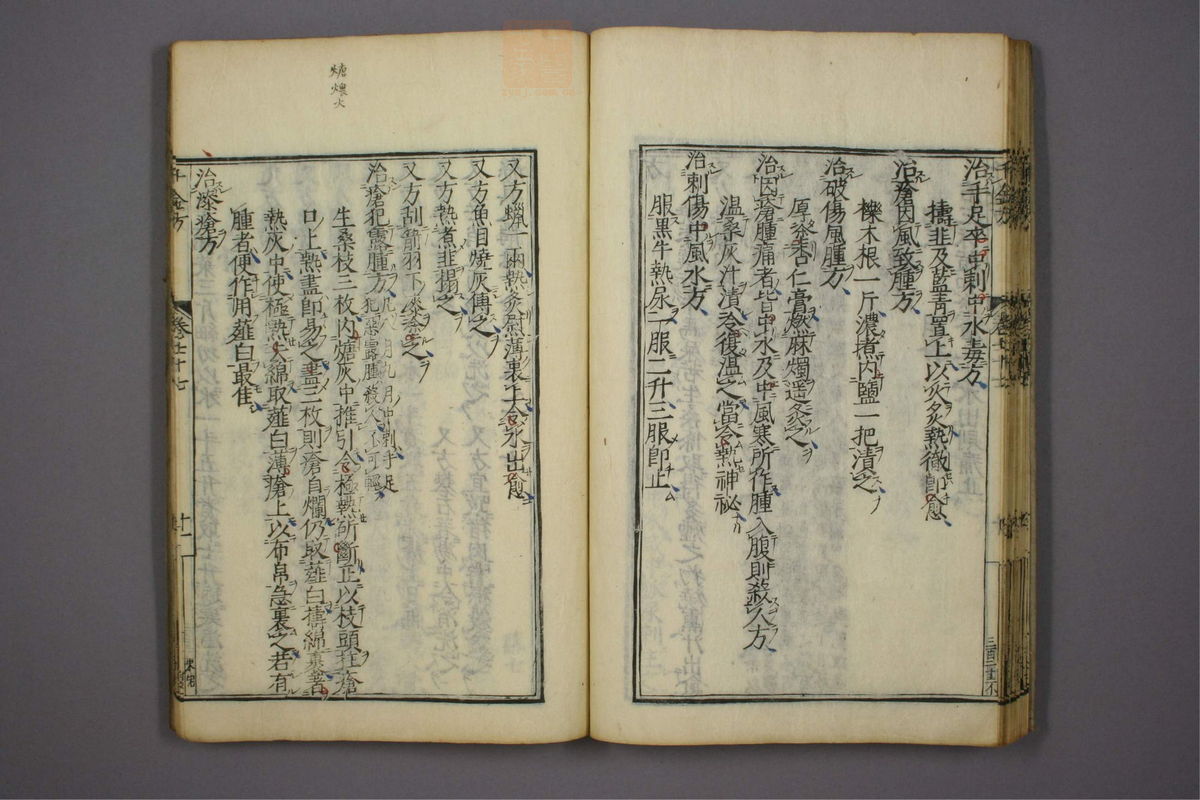 治手足卒中刺中水毒方
擣韭及藍青置上以火炙熱徹卽愈
治瘡因風致腫方
櫟木根一斤濃揩內鹽一把漬之
治破傷風腫方
厚杏仁膏燃麻燭遥灸之
治因瘡腫痛者皆中水及中風寒所作腫入腹則殺人方
溫桑灰汁漬冷復溫之當令熱神祕
治刺傷中風水方
服黑牛熱尿一服二升三服卽止
又方蠟一兩熱灸熨薄裹上令水出愈
又方魚目燒灰傅之
又方熱煮韭搨之
又方刮箭羽下漆塗之
治瘡犯露腫方凡八月九月中刺手足犯惡露腫殺人不可輕
生桑枝三枚內煻灰中推引令極熱斫斷正以枝頭拄瘡
口上熱盡卽易之盡三枚則瘡自爛仍取薤白擣綿裹著
熱灰中使極熱去綿取薤白薄瘡上以布帛急裹之若有
腫者便作用薤白最佳
治漆瘡方
千金方
卷七十七
十一
煻煨火